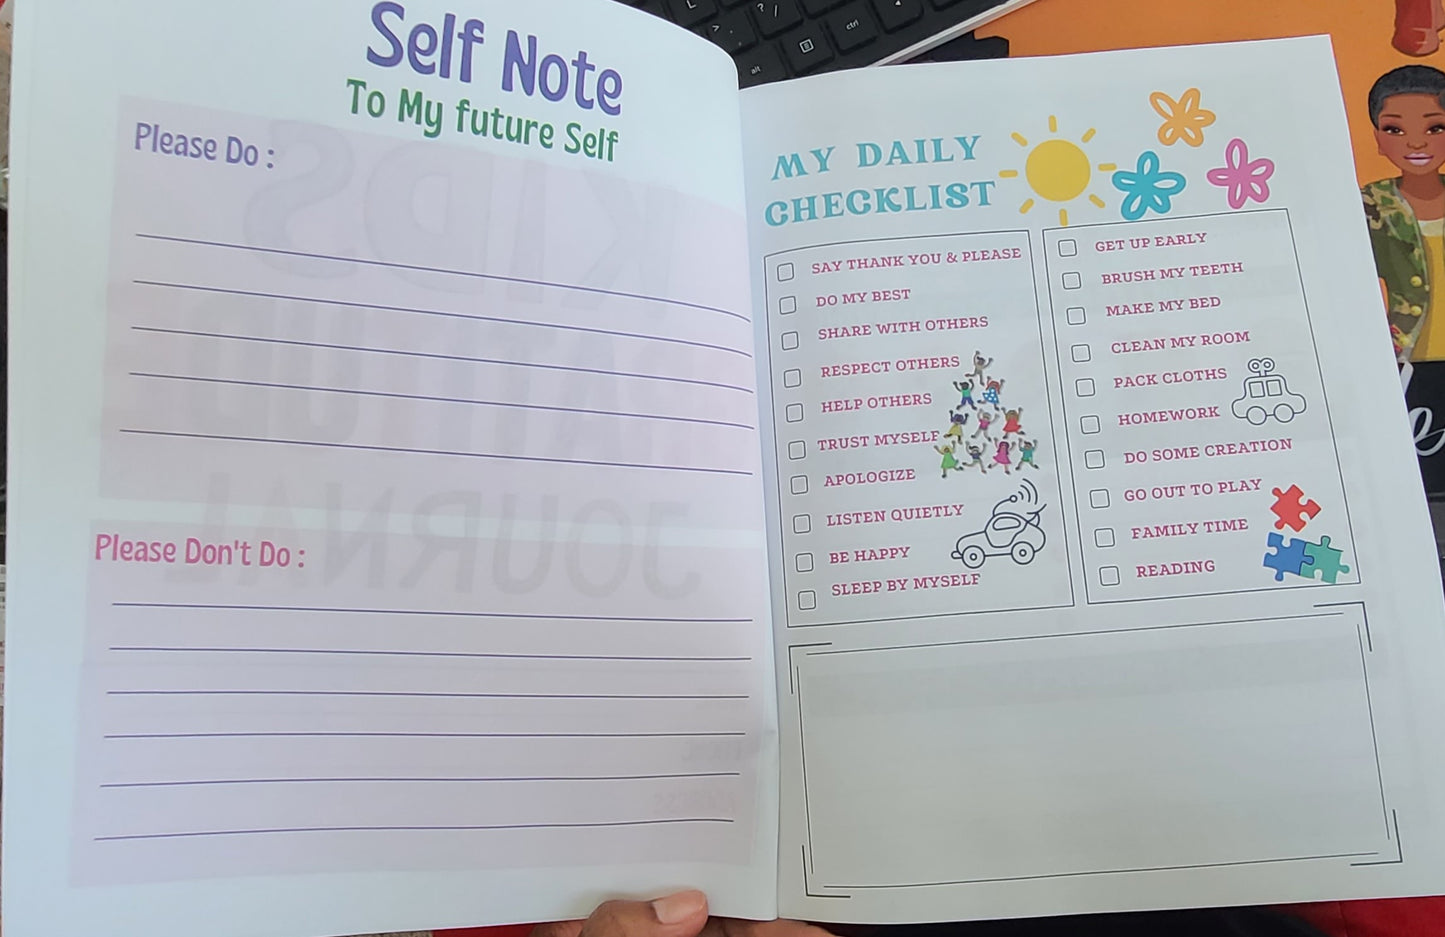 Self Note
To My future Self
Please Do :
Please Don't Do :
MY DAILY
CHECKLIST
SAY THANK YOU & PLEASE
DO MY BEST
SHARE WITH OTHERS
RESPECT OTHERS
HELP OTHERS
TRUST MYSELF
APOLOGIZE
LISTEN QUIETLY
BE HAPPY
SLEEP BY MYSELF
GET UP EARLY
BRUSH MY TEETH
MAKE MY BED
CLEAN MY ROOM
PACK CLOTHS
HOMEWORK
DO SOME CREATION
GO OUT TO PLAY
FAMILY TIME
READING
KIDS
JOURNAL
L
? /
> .
alt
ctrl